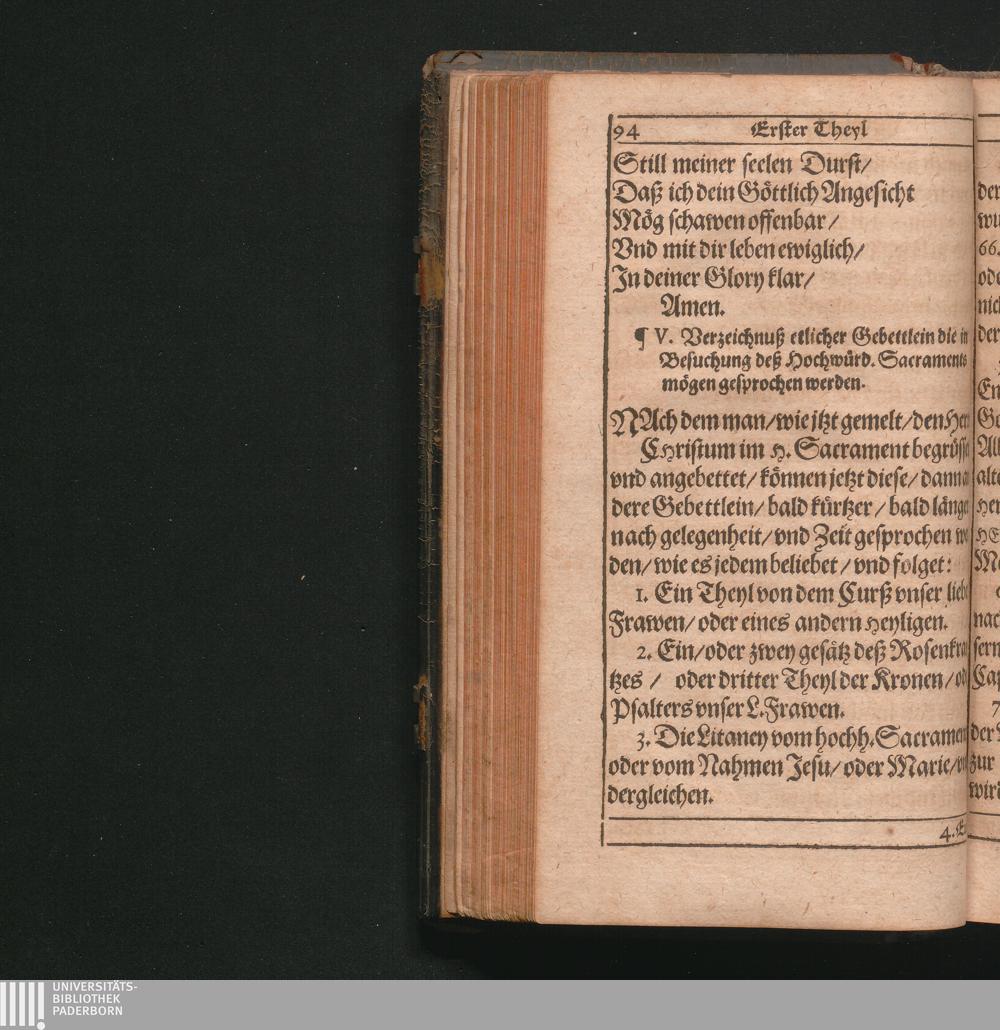 94 Erster Theyl
Still meiner seelen Durst/
Daß ich dein Göttlich Angesicht
Mög schawen offenbar /
Vnd mit dir leben ewiglich/
In deiner Glory klar/
Amen.
¶ V. Verzeichnuß etlicher Gebettlein die in
Besuchung deß Hochwürd. Sacraments
mögen gesprochen werden.
NAch dem man/wie jtzt gemelt/den
CHristum im H. Sacrament
vnd angebettet/ können jetzt diese/ dann
dere Gebettlein/ bald kürtzer / bald
nach gelegenheit/ vnd Zeit gesprochen
den/ wie es jedem beliebet / vnd folget:
1. Ein Theyl von dem Curß vnser
Frawen/ oder eines andern Heyligen.
2. Ein/oder zwey gesätz deß
tzes / oder dritter Theyl der Kronen/
Psalters vnser L. Frawen.
3. Die Litaney vom hochh.
oder vom Nahmen Jesu/ oder Marie/
dergleichen.
4.
66.
UNIVERSITÄTS-
BIBLIOTHEK
PADERBORN